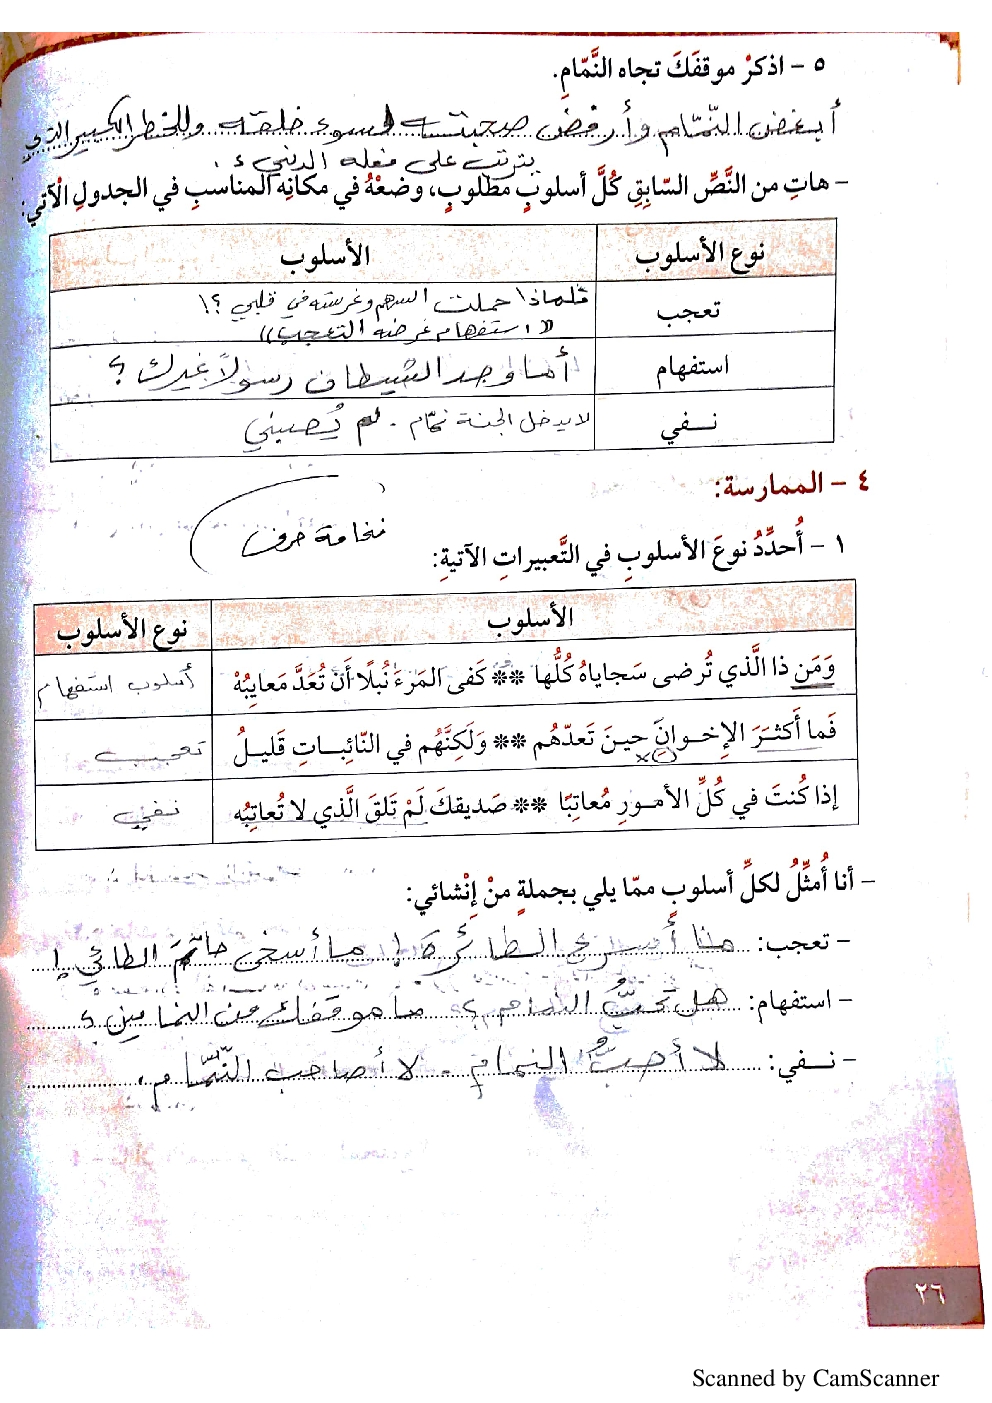 ٥ - اذكرْ موقفَكَ تجاه النَّمّامِ.
أبغض النمّام وأرفض صحبته لسوء خلقه وللخطر الكبير الذي
يترتب على فعله الدنيء.
- هاتِ من النَّصِّ السّابِقِ كُلَّ أسلوبٍ مطلوبٍ، وضعْهُ في مكانِه المناسبِ في الجدولِ الآتي:
نوع الأسلوب
الأسلوب
تعجب
فلماذا حملت السهم وغرسته في قلبي ؟!
((استفهام غرضه التعجب))
استفهام
أما وجد الشيطان رسولاً غيرك ؟
نـفي
لا يدخل الجنة نمّام . لم يُصبني
٤ - الممارسة:
١ - أُحدِّدُ نوعَ الأسلوبِ في التَّعبيراتِ الآتيةِ:
الأسلوب
نوع الأسلوب
وَمَن ذا الَّذي تُرضى سَجاياهُ كُلُّها ** كَفى المَرءَ نُبلًا أَن تُعَدَّ مَعايِبُهْ
أسلوب استفهام
فَما أَكثَـرَ الإِخـوانَ حينَ تَعدّهُم ** وَلَكِنَّهُم في النّائِبـاتِ قَليـلُ
تعجب
إذا كُنتَ في كُلِّ الأمـورِ مُعاتِبًا ** صَديقَكَ لَمْ تَلقَ الَّذي لا تُعاتِبُه
نفي
- أنا أُمثِّلُ لكلِّ أسلوبٍ ممّا يلي بجملةٍ منْ إِنْشائي:
- تعجب: ما أسرع الطائرة ! ما أسخى حاتم الطائي !
- استفهام: هل تحبُّ ؟ ما موقفك من النمامين ؟
- نـفي: لا أحبُّ النمام . لا أصاحب النَّمّام .
٢٦
Scanned by CamScanner